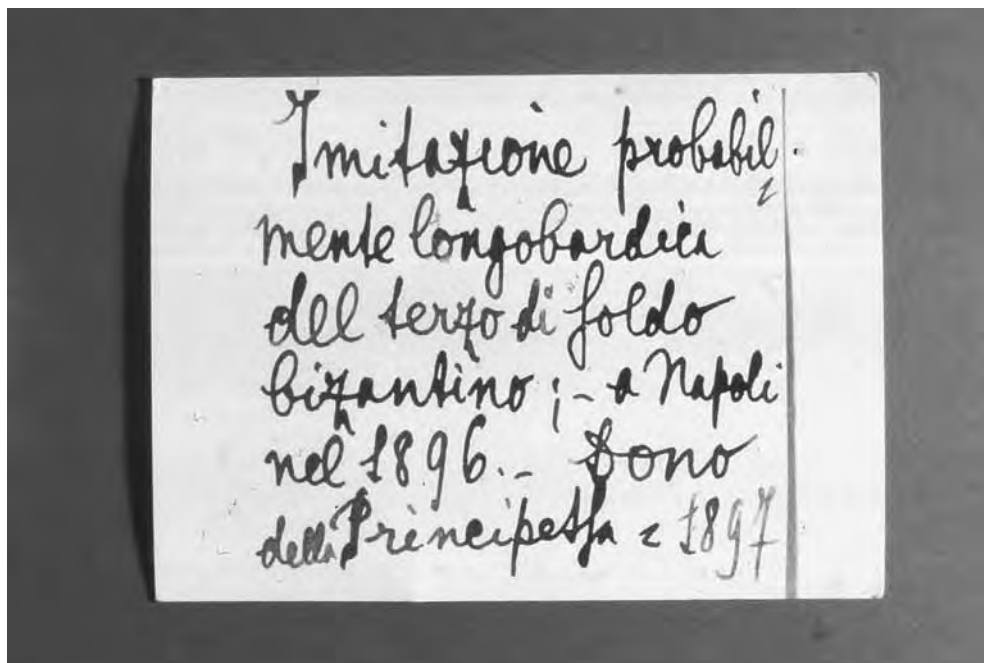 Imitazione probabil=
mente longobardica
del terzo di soldo
bizantino ; - a Napoli
nel 1896. - Dono
della Principessa = 1897